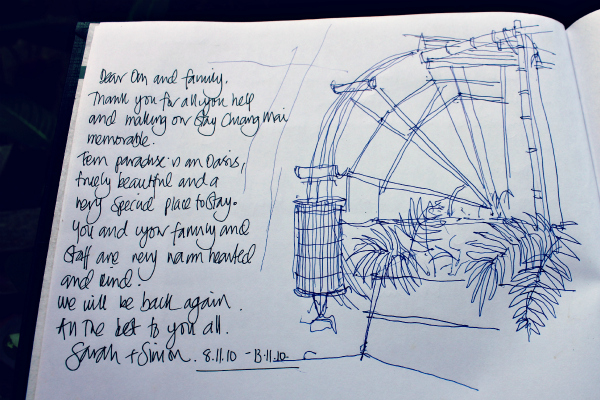 Dear Om and family.
Thank you for all you help
and making our Stay Chiang Mai
memorable.
Fern paradise is an Oasis,
truely beautiful and a
very special place to Stay.
You and your family and
Staff are very warm hearted
and kind.
We will be back again.
All the best to you all.
Sarah + Simon. 8.11.10 - 13.11.10